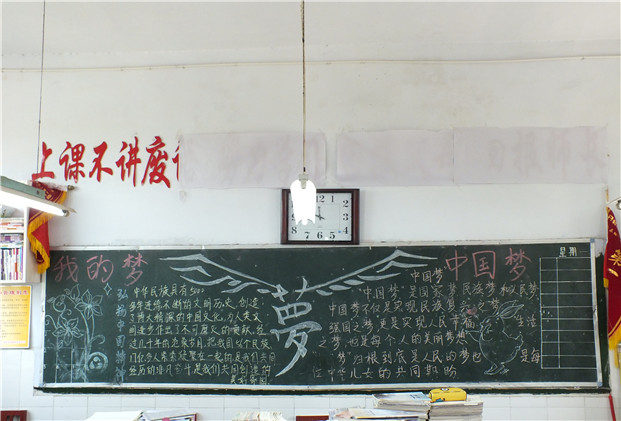 上课不讲废
12
我的梦
中国梦
星期
弘扬中国精神
中华民族具有5000
多年连绵不断的文明历史,创造
了博大精深的中国文化,为人类文
明进步作出了不可磨灭的贡献,经
过几千年的沧桑岁月,把我国56个民族
们
紧紧凝聚在一起的是我们共同
经历的非凡奋斗是我们共同创造的
美好家园
梦
中国梦
"中国梦"是国家梦民族梦和人民梦.
中国梦不仅是实现民族复兴之梦
强国之梦更是实现人民幸福生活
之梦也是每个人的美丽梦想
梦归根到底是人民的梦也是每
位中华儿女的共同期盼